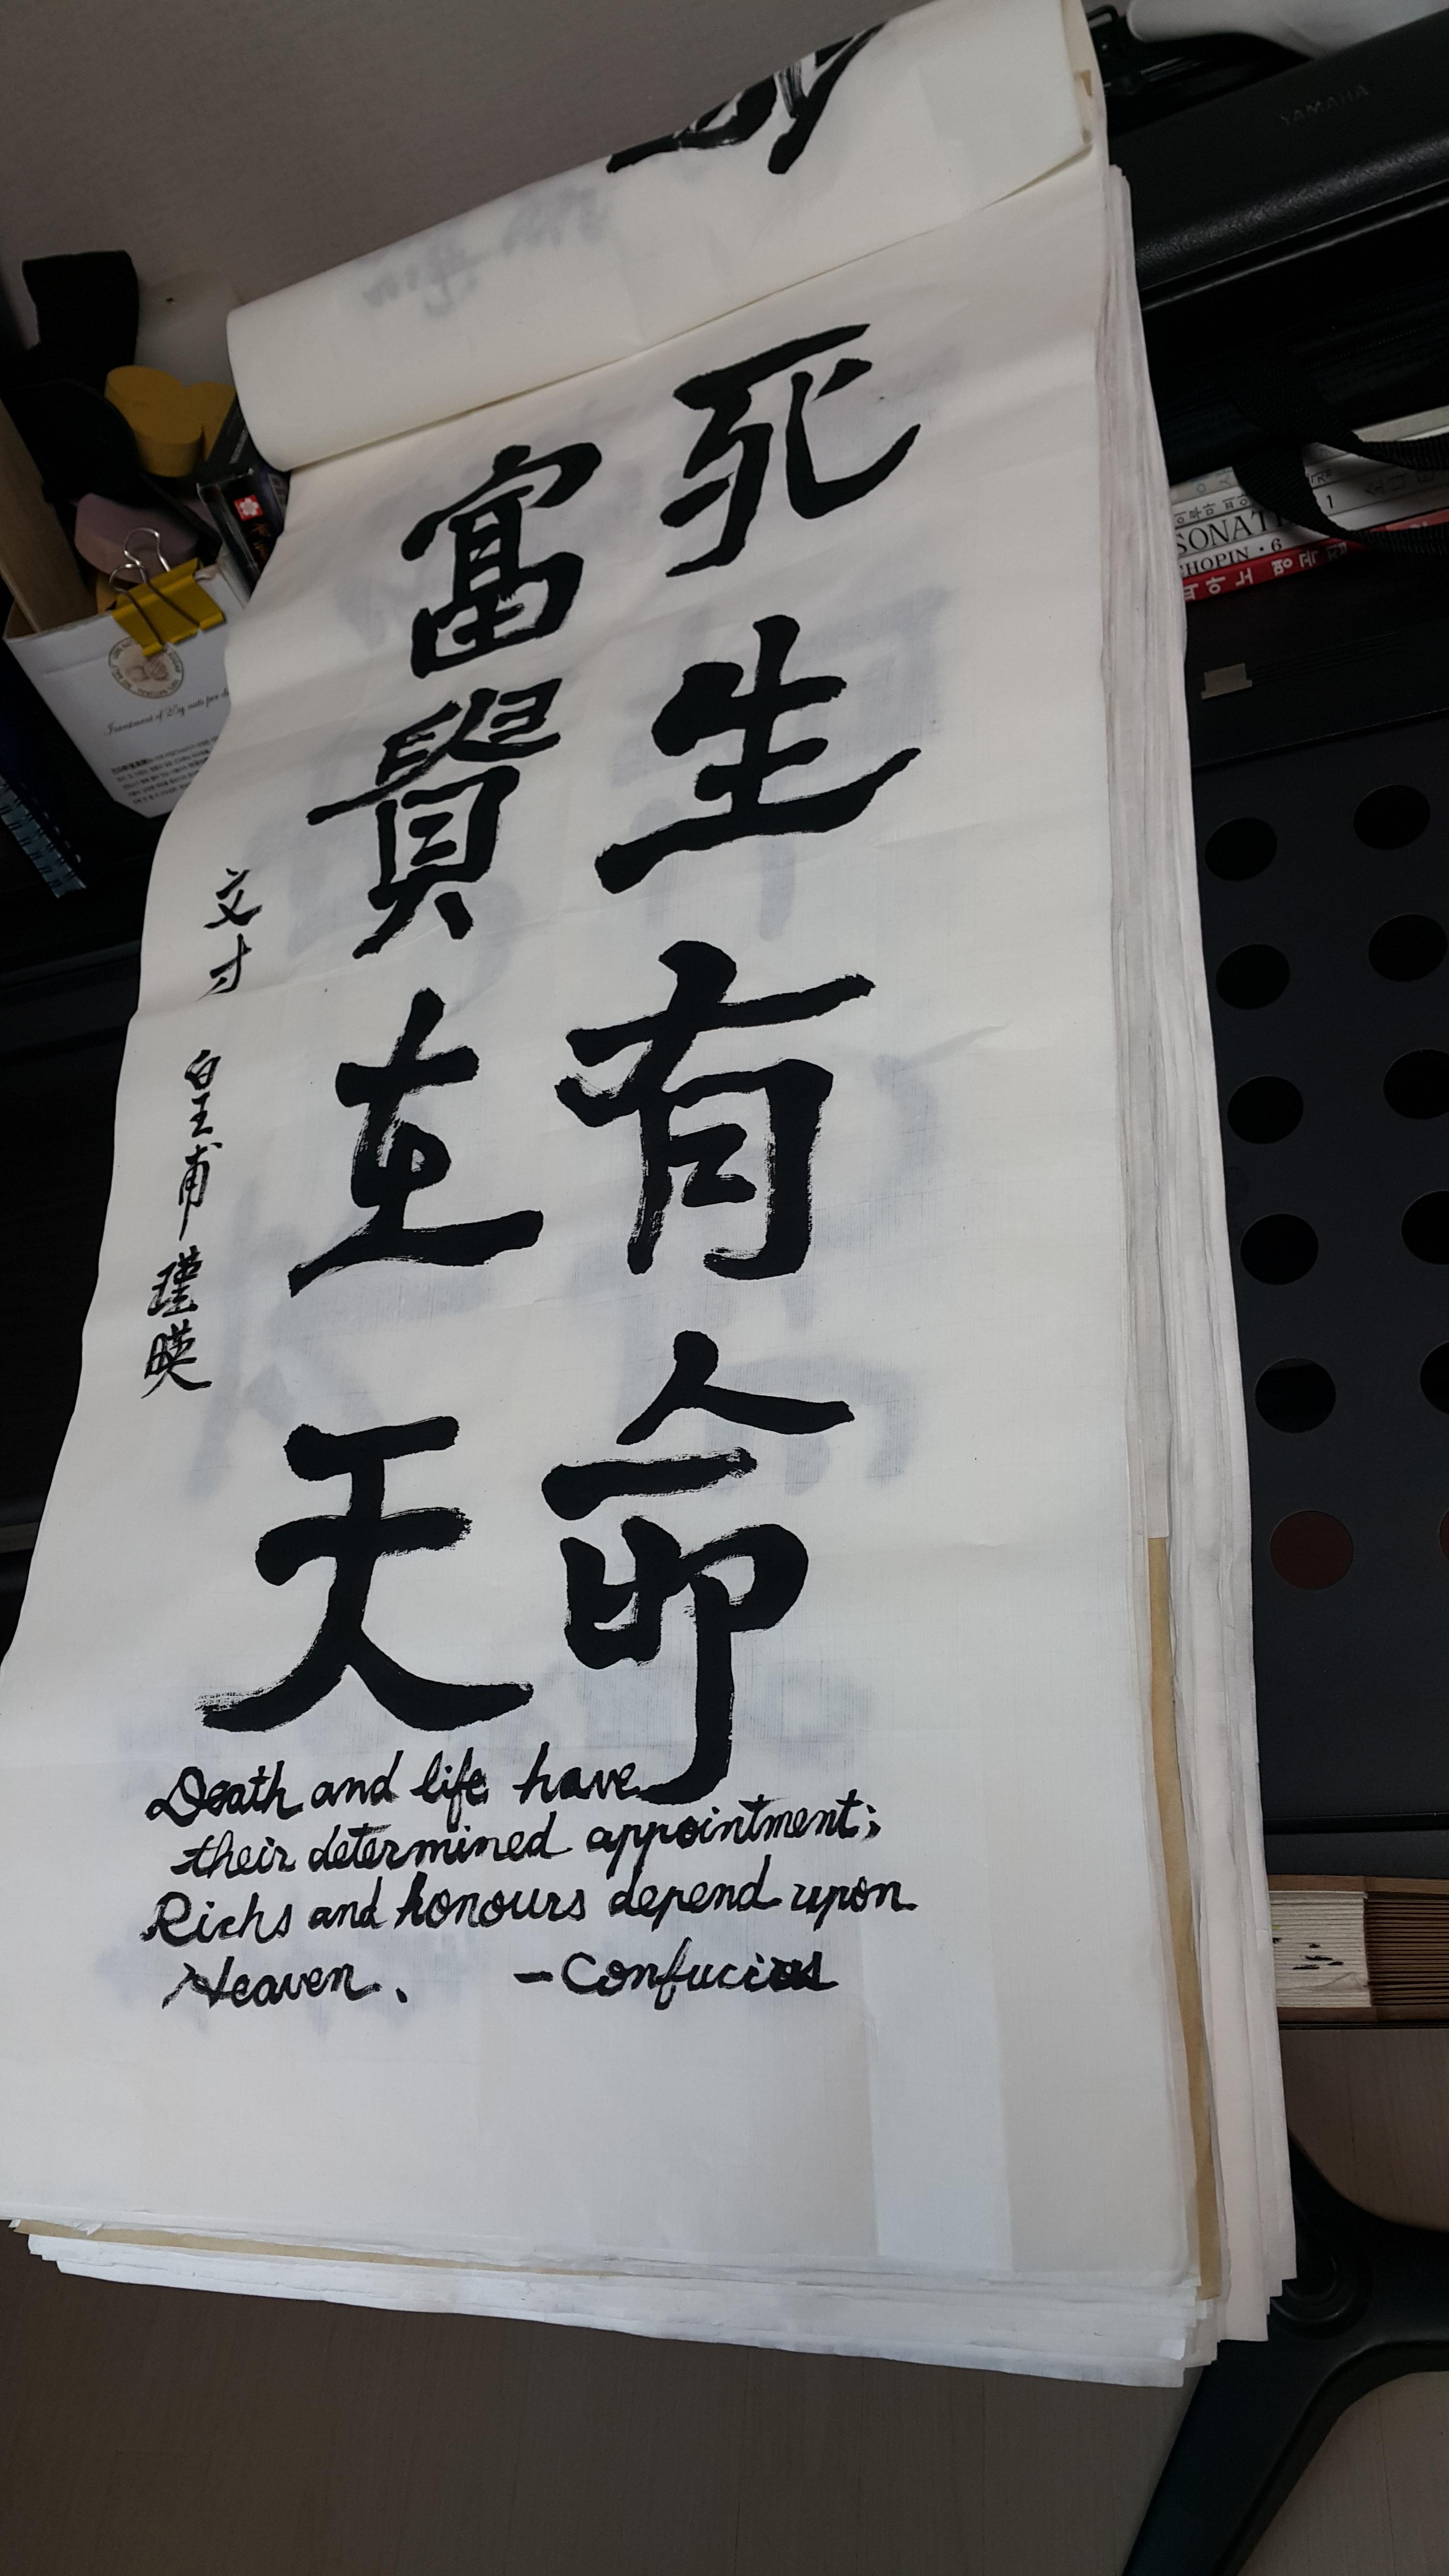 死生有命
富貴在天
文才 皇甫瑾暎
Death and life have
their determined appointment;
Richs and honours depend upon
Heaven. -Confucius
YAMAHA
SONATI
CHOPIN・6
피아노 명곡